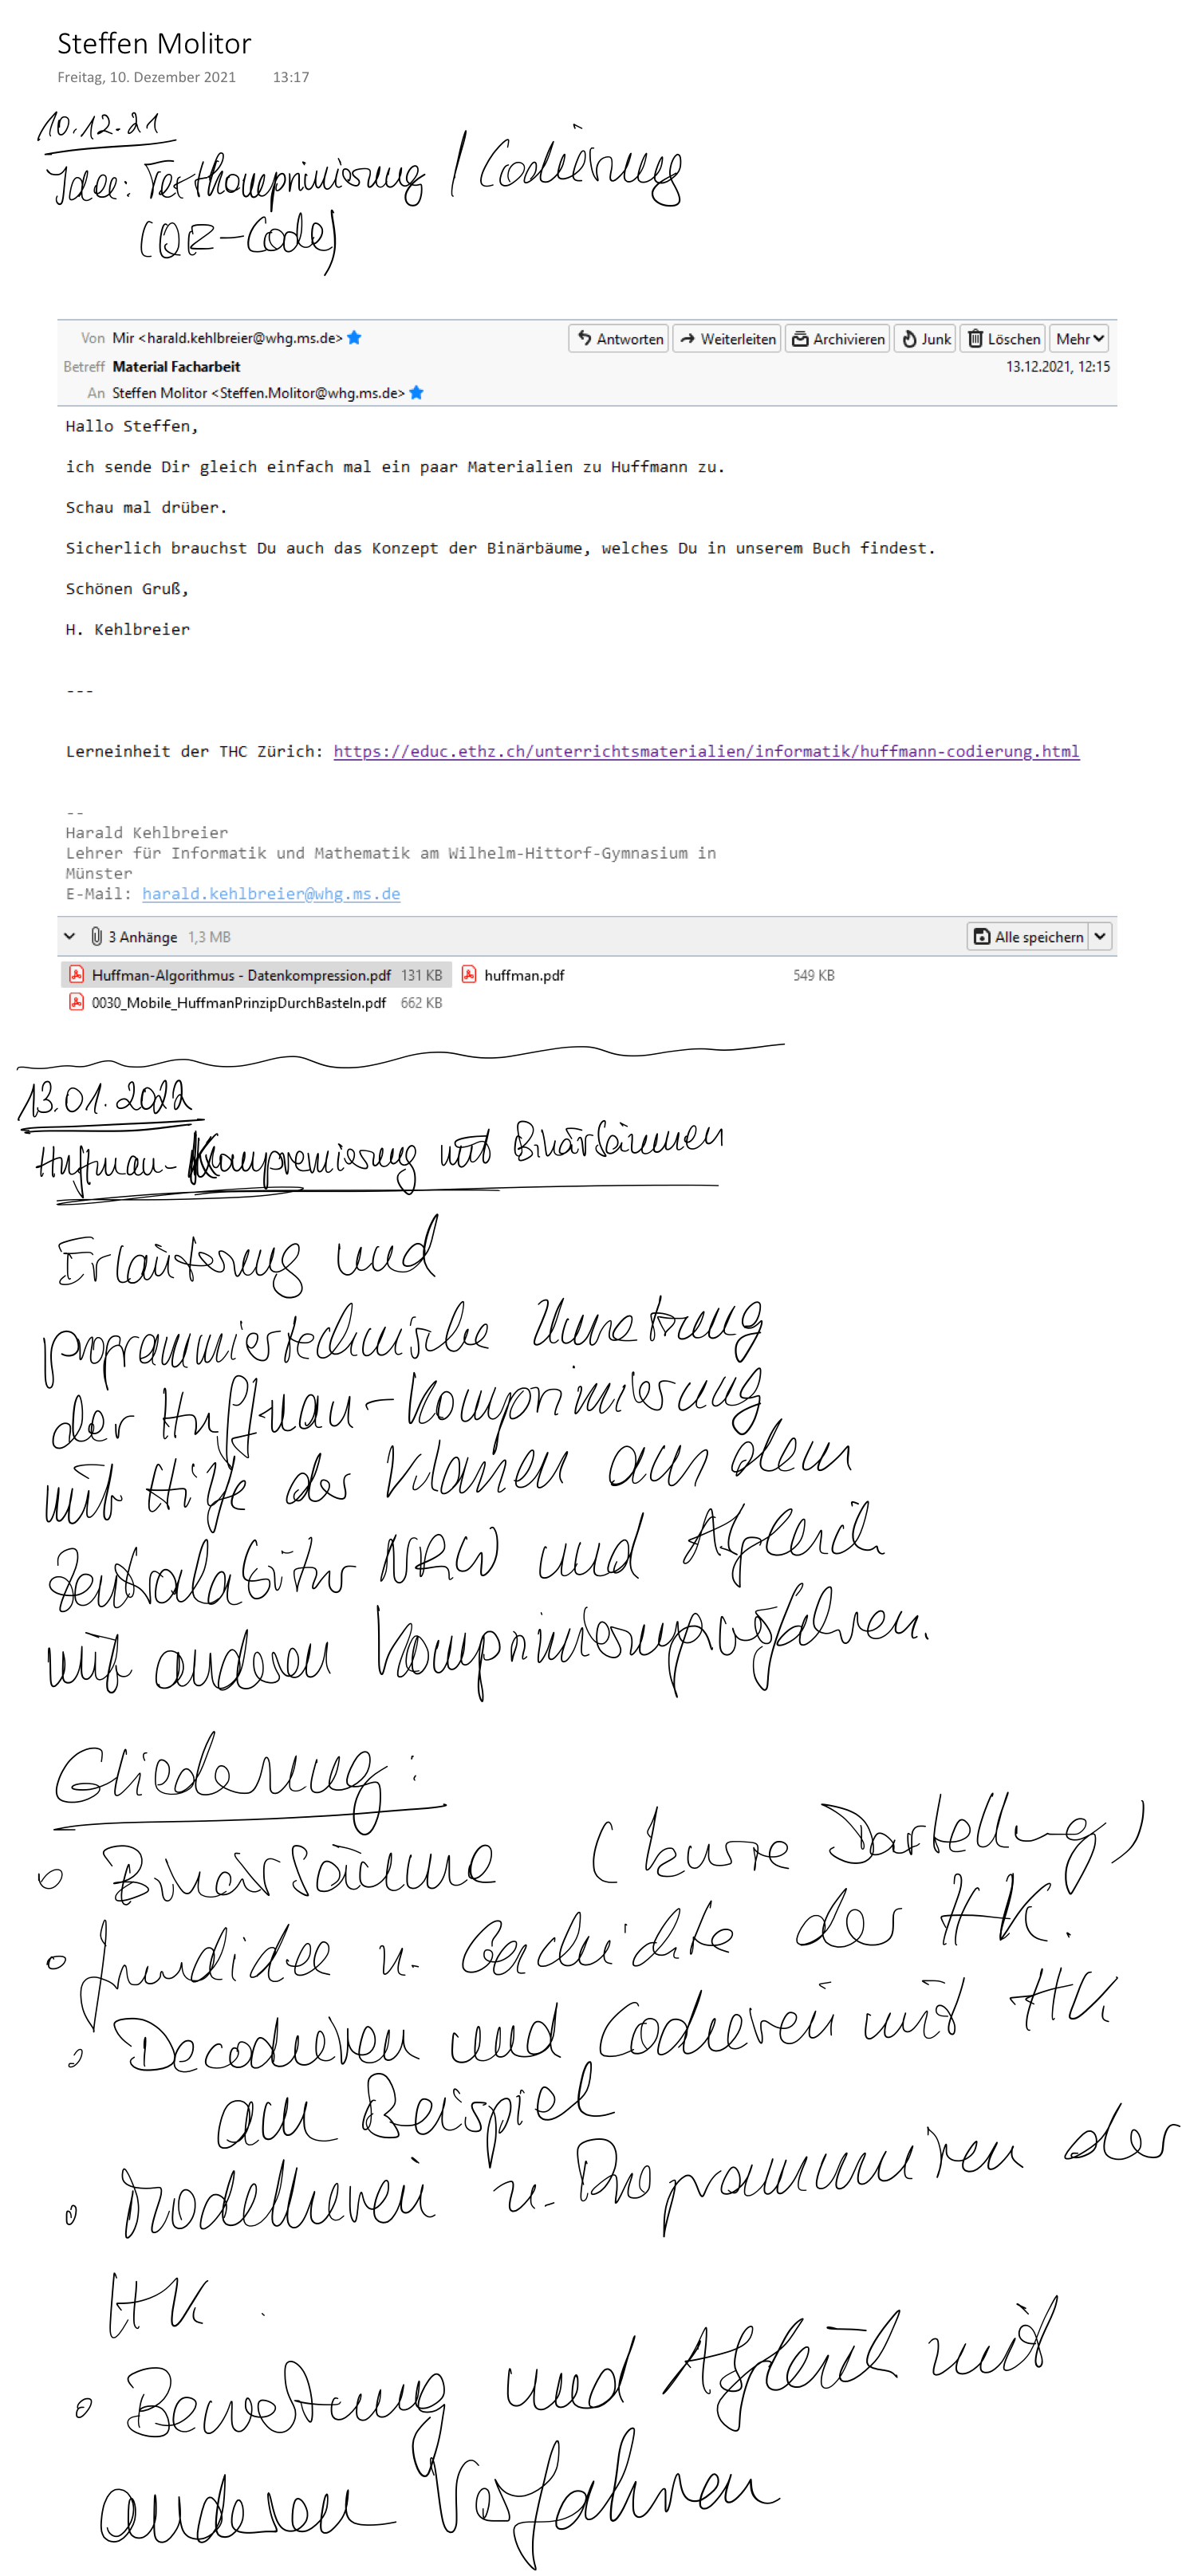 Steffen Molitor
Freitag, 10. Dezember 2021 13:17
10.12.21
Idee: Textkomprimierung / Codierung
(QR-Code)
Von Mir <harald.kehlbreier@whg.ms.de> Antworten Weiterleiten Archivieren Junk Löschen Mehr
Betreff Material Facharbeit 13.12.2021, 12:15
An Steffen Molitor <Steffen.Molitor@whg.ms.de>
Hallo Steffen,
ich sende Dir gleich einfach mal ein paar Materialien zu Huffmann zu.
Schau mal drüber.
Sicherlich brauchst Du auch das Konzept der Binärbäume, welches Du in unserem Buch findest.
Schönen Gruß,
H. Kehlbreier
---
Lerneinheit der THC Zürich: https://educ.ethz.ch/unterrichtsmaterialien/informatik/huffmann-codierung.html
--
Harald Kehlbreier
Lehrer für Informatik und Mathematik am Wilhelm-Hittorf-Gymnasium in
Münster
E-Mail: harald.kehlbreier@whg.ms.de
3 Anhänge 1,3 MB Alle speichern
Huffman-Algorithmus - Datenkompression.pdf 131 KB huffman.pdf 549 KB
0030_Mobile_HuffmanPrinzipDurchBasteln.pdf 662 KB
13.01.2022
Huffman-Kompremierung mit Binärbäumen
Erläuterung und
programmiertechnische Umsetzung
der Huffman-Komprimierung
mit Hilfe der Klassen aus dem
Zentralabitur NRW und Abgleich
mit anderen Komprimierungsverfahren.
Gliederung:
• Binärbäume (kurze Darstellung)
• Grundidee u. Geschichte der HK.
• Decodieren und Codieren mit HK
am Beispiel
• Modellieren u. Programmieren der
HK.
• Bewertung und Abgleich mit
anderen Verfahren